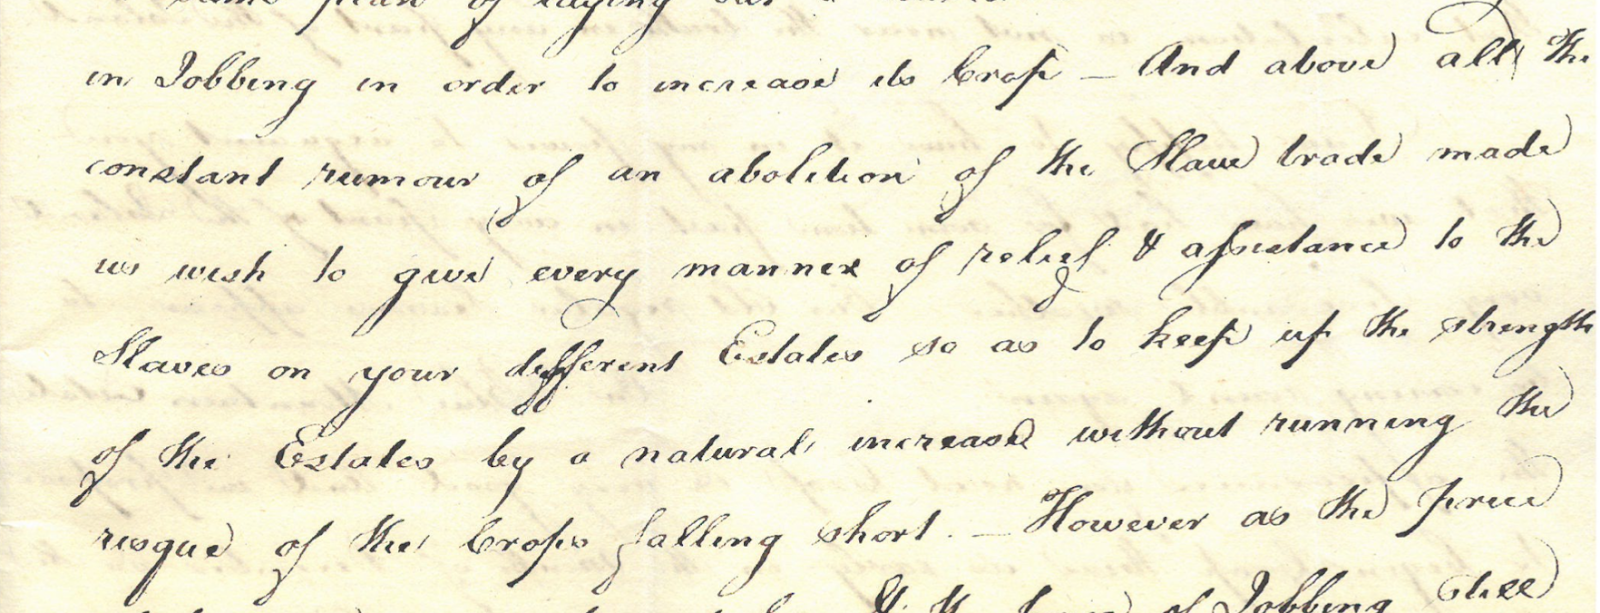 same plan of laying out a
in Jobbing in order to increase its Crop – And above all the
constant rumour of an abolition of the Slave trade made
us wish to give every manner of relief & assistance to the
Slaves on your different Estates so as to keep up the strength
of the Estates by a natural increase without running the
risque of the Crops falling short. – However as the price
of Jobbing